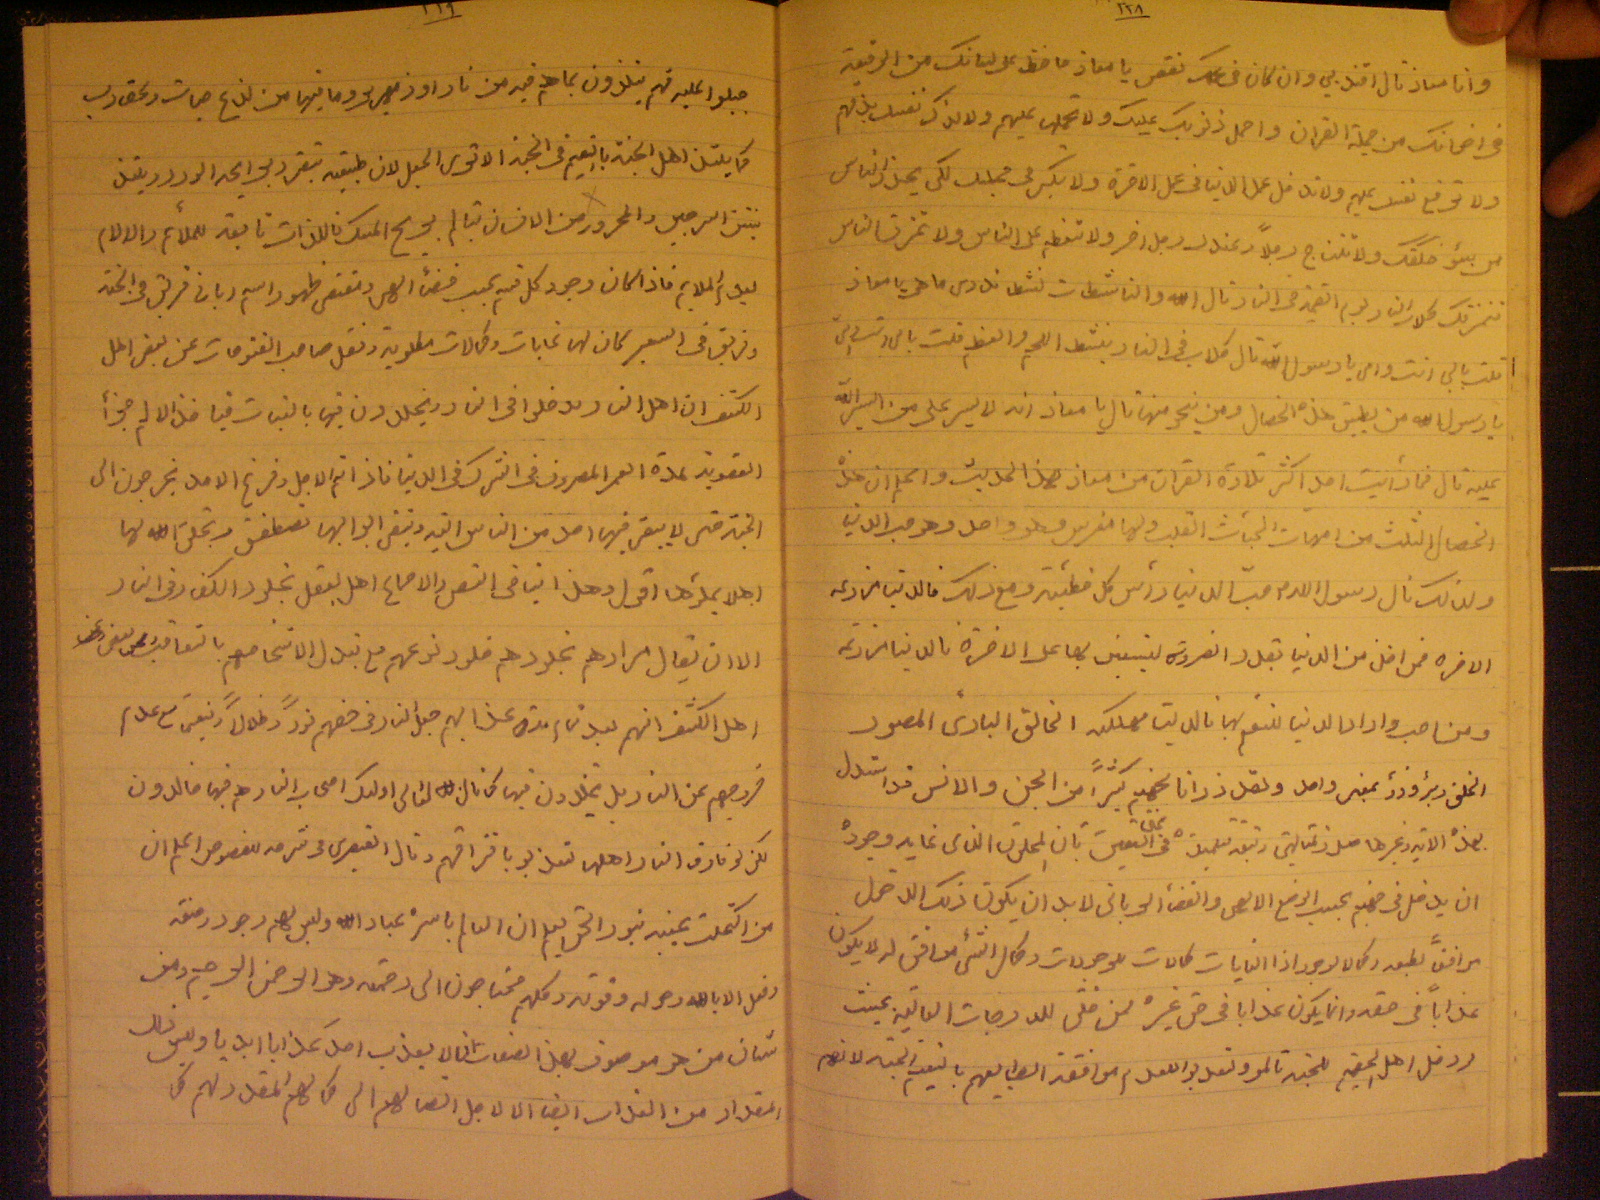 ٢٢٨
وانا معاذ قال اقتد بي وان كان في عملك نقص يا معاذ حافظ على لسانك من الوقيعة
في اخوانك من حملة القران واحمل ذنوبك عليك ولا تحملها عليهم ولا تزك نفسك بذمهم
ولا ترفع نفسك عليهم ولا تدخل عمل الدنيا في عمل الاخرة ولا تكبر في مجلسك لكي يحذر الناس
من سوء خلقك ولا تتناج رجلاً وعندك رجل اخر ولا تتعظم على الناس ولا تمزق الناس
فتمزقك كلاب النار يوم القيمة في النار قال الله والناشطات نشطا تدرى ما هن يا معاذ
قلت بابي انت وامي يا رسول الله قال كلاب في النار ينشط اللحم والعظم قلت بابي انت وامي
يا رسول الله من يطيق هذه الخصال ومن ينجو منها قال يا معاذ انه لا يسير على من يسره الله
عليه قال فما رأيت احد اكثر تلاوة القران من معاذ لهذا الحديث واعلم ان هذه
الخصال الثلث من امهات الخبائث القلب ولها مغرس واحد وهو حب الدنيا
ولذلك قال رسول الله حب الدنيا رأس كل خطيئة ومع ذلك فالدنيا مزرعة
الاخره فمن اخذ من الدنيا بقدر الضرورة ليستعين بها على الاخرة فالدنيا مزرعته
ومن احب واراد الدنيا ليتنعم بها فالدنيا مهلكته الخالق البارئ المصور
الخلق وبرؤ وذرؤ بمعنى واحد ولقد ذرأنا لجهنم كثيراً من الجن والانس قد استدل
بهذه الاية وغيرها
ان يدخل في جهنم بحسب الوضع الالهي والقضاء الرباني لا بد ان يكون ذلك الدخول
موافقاً لطبعه وكمالا لوجوده اذا الغايات كمالات للوجودات وكمال الشئ الموافق له لا يكون
عذاباً في حقه وانما يكون عذابا في حق غيره ممن خلق للدرجات العالية بحيث
لو دخل اهل الجحيم الجنة تالموا وتعذبوا لعدم موافقة طبايعهم بالنعيم الجنة لانهم
٢٢٩
جبلوا عليه فهم يتلذذون بما هم فيه من نار او زمهرير وما فيها من لدغ حيات وعقارب
كما يلتذ اهل الجنة بالنعيم في الجنة الا ترى الجعل لان طبيعته يتضرر بريح الورد ويلتذ
بنتن السرجين والمحرور من الانسان يتالم بريح المسك فاللذات تابعة للملائم والالام
لعدم الملايم فاذا كان وجود كل قسم بحسب قضاء الهي ومقتضى ظهور اسم رباني فريق في الجنة
وفريق في السعير كان لها غايات وكمالات مطلوبة ونقل صاحب الفتوحات عن بعض اهل
الكشف ان اهل النار يدخلوا في النار ويخلدون فيها بالنيات فياخذ الالم جزأ
العقوبة لمدة العمر المصروف في الشرك في الدنيا فاذا تم الاجل وفرغ الامد يخرجون الى
الجنة حتى لا يبقى فيها احد من الناس البتة وتبقى ابوابها تصطفق ويخلق الله لها
اهلا يملؤها اقول وهذا ينافي النص والاجماع اهل العقل بخلود الكفار في النار
الا ان يقال مرادهم بخلودهم خلود نوعهم مع تبدل الاشخاصهم بالتعاقب وعن بعض
اهل الكشف انهم بعد تمام مدة عذابهم جعل النار في حقهم برداً وظلالاً ونعيماً مع عدم
خروجهم عن النار بل يخلدون فيها كما قال الله تعالى اولئك اصحاب النار هم فيها خالدون
لكن لو فارق النار اهلها تعذبوا بافتراقهم وقال القيصرى في شرحه للفصوص اعلم ان
من اكتحلت عينه بنور الحق يعلم ان العالم باسره عباد الله وليس لهم وجود وصفة
وفعل الا بالله وحوله وقوته وكلهم محتاجون الى رحمته وهو الرحمن الرحيم ومن
شان من هو موصوف بهذا الصفات ان لا يعذب احد عذابا ابديا وليس ذلك
المقدار من العذاب ايضا الا لاجل ايصالهم الى كمالاتهم المقدر لهم كما